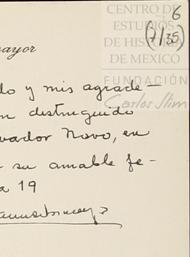 6
(7/35)
CENTRO DE
ESTUDIOS
DE HISTORIA
DE MÉXICO
FUNDACIÓN
Carlos Slim
mayor
do y mis agrade-
distinguido
vador Novo, en
su amable fe-
a 19